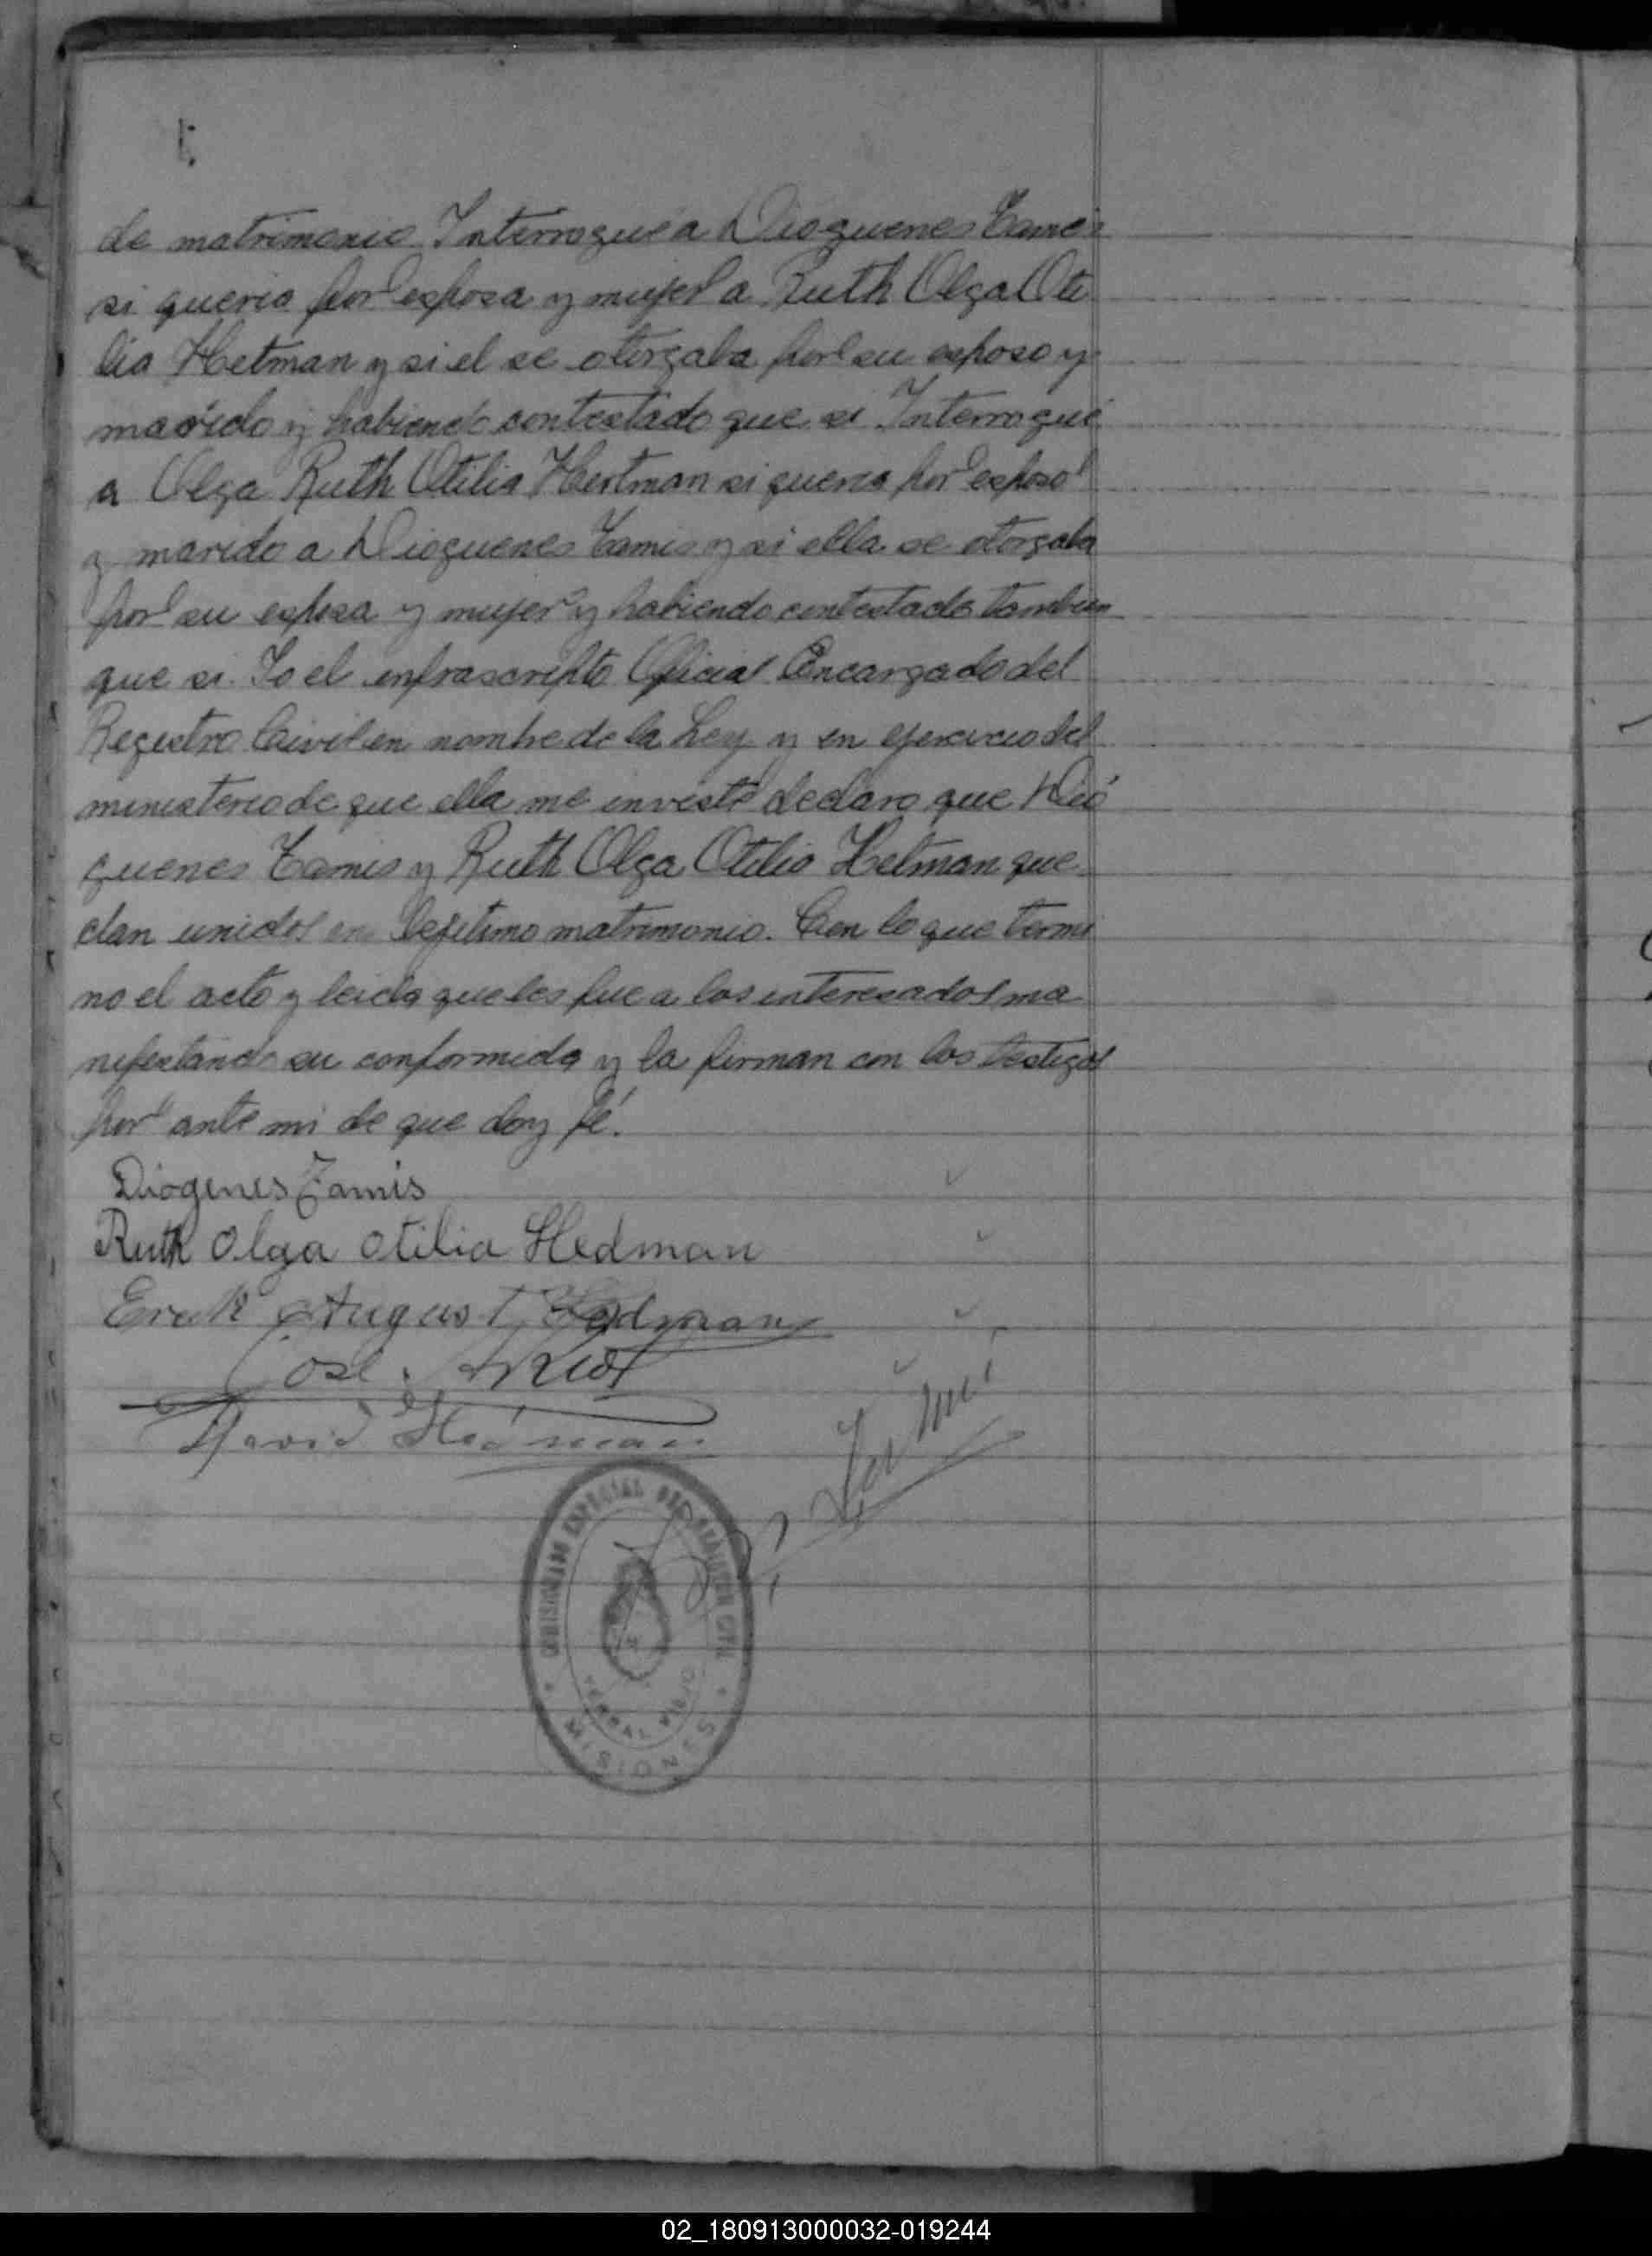 de matrimonio Interrogué a Dioguenes Tamis
si queria por esposa y mujer a Ruth Olga Oti
lia Hetman y si el se otorgaba por su esposo y
marido y habiendo contestado que si Interrogué
a Olga Ruth Otilia Hertman si queria por esposo
y marido a Dioguenes Tamis y si ella se otorgaba
por su esposa y mujer y habiendo contestado tambien
que si. Yo el infrascripto Oficial Encargado del
Registro Civil en nombre de la Ley y en ejercicio del
ministerio de que ella me inviste declaro que Dió
guenes Tamis y Ruth Olga Otilia Hetman que
dan unidos en lejitimo matrimonio. Con lo que termi
no el acto y leida que les fue a los interesados ma
nifestando su conformida y la firman con los testigos
por ante mi de que doy fé.
Diogenes Tamis
Ruth Olga Otilia Hedman
August Hedman
José
David Hedman
COMISARIADO ESPECIAL DEL REGISTRO CIVIL
YERBAL VIEJO
MISIONES
02_180913000032-019244